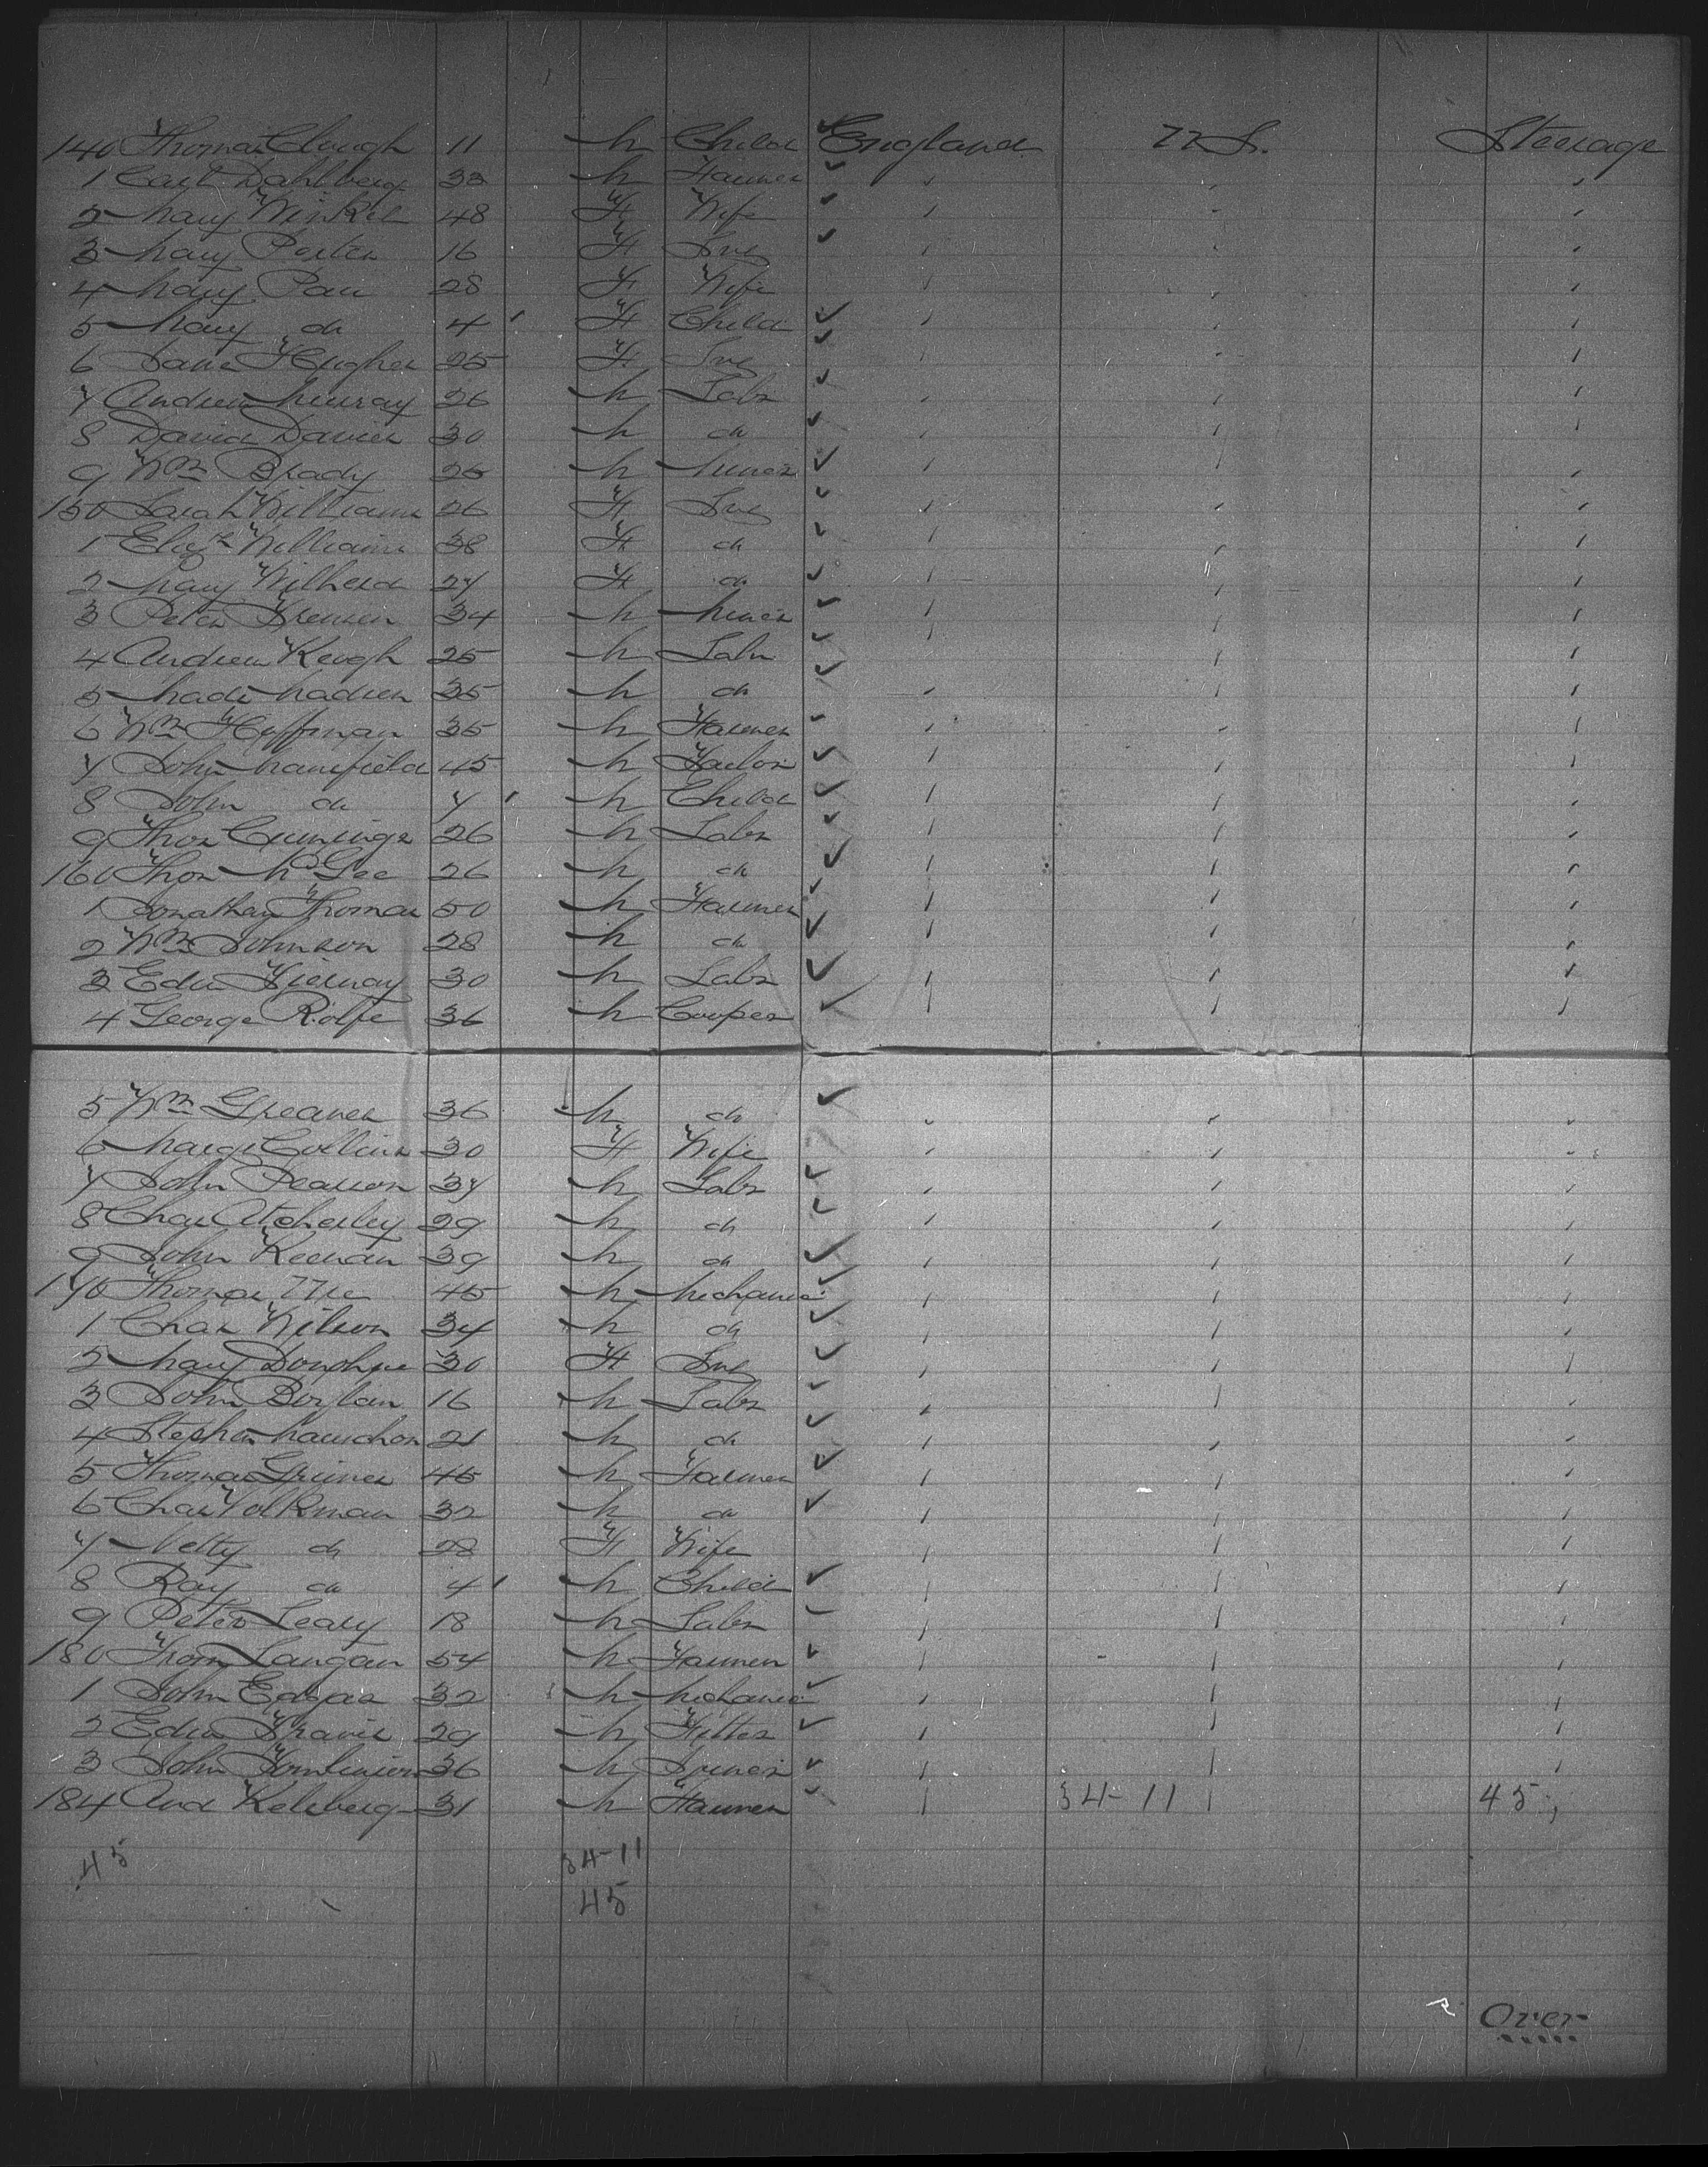 140 Thomas Clough 11 M Child England U.S. Steerage
1 Carl Dahlberg 33 M Farmer
2 Mary Winkel 48 F Wife
3 Mary Porter 16 F Svt
4 Mary 28 F Wife
5 Mary do 4 F Child
6 Jane Hughes 25 F Svt
7 Andrew Murray 26 M Labr
8 David Davies 30 M do
9 Wm Brady 25 M Miner
150 Sarah Williams 26 F Svt
1 Elizth Williams 38 F do
2 Mary 27 F do
3 Peter 34 M Miner
4 Andrew Keogh 25 M Labr
5 Madsen 35 M do
6 Wm Hoffman 35 M Farmer
7 John Mansfield 45 M Tailor
8 John do 7 M Child
9 Thos Cumings 26 M Labr
160 Thos McGee 26 M do
1 Jonathan Thomas 50 M Farmer
2 Wm Johnson 28 M do
3 Edw 30 M Labr
4 George Rolfe 36 M Cooper
5 Wm Greaves 36 M do
6 Margt Collins 30 F Wife
7 John Pearson 37 M Labr
8 Chas Atcherley 29 M do
9 John Keenan 39 M do
170 Thomas 45 M Mechanic
1 Chas Wilson 34 M do
2 Mary Donohue 30 F Svt
3 John Boylan 16 M Labr
4 Stephen 21 M do
5 Thomas Grimes 45 M Farmer
6 Chas Volkman 32 M do
7 Netty do 28 F Wife
8 Ray do 4 M Child
9 Peter Leary 18 M Labr
180 Thom Langan 54 M Farmer
1 John Edgar 32 M Mechanic
2 Edw Travis 29 M Fitter
3 John Tomlinson 36 M
184 And Keleberg 31 M Farmer 34-11 45
45 34-11
45
Over